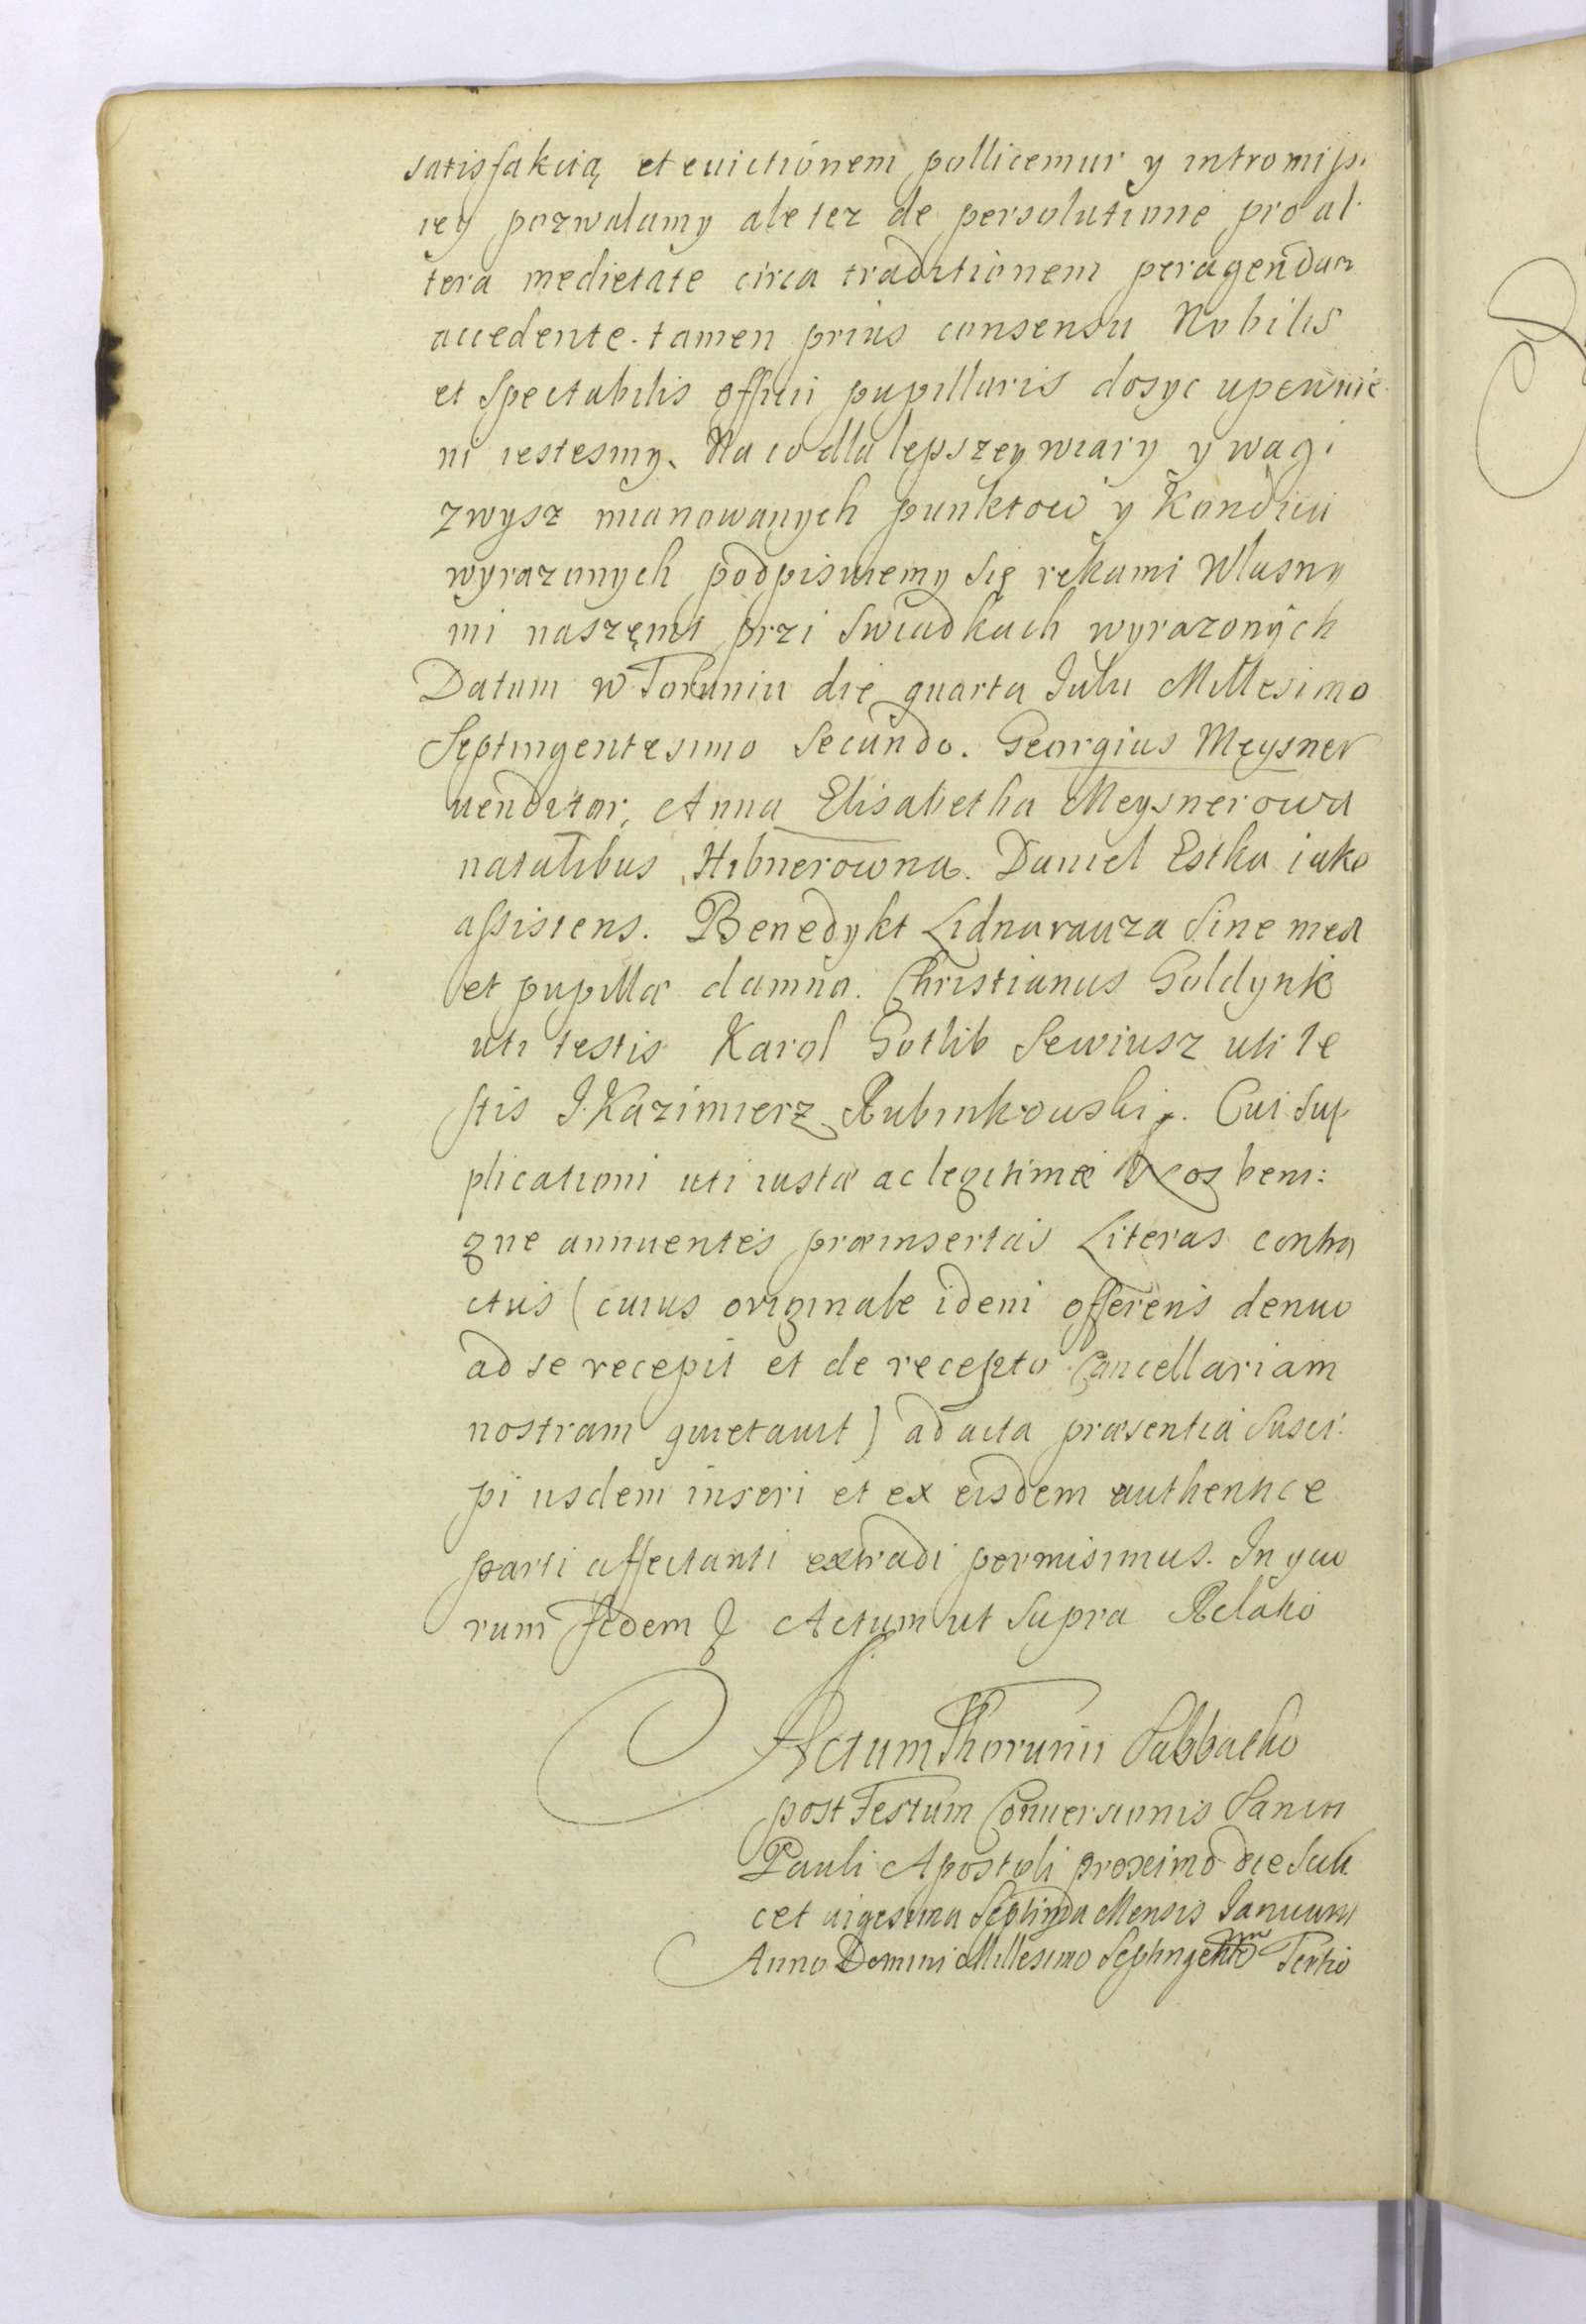 satisfakcią et euictionem pollicemur y intromiss.
iey pozwalamy ale tez de persolutione pro al.
tera medietate circa traditionem peragendam
accedente tamen prius consensu Nobilis
et Spectabilis officii pupillaris dosyc upewnie.
ni iestesmy. Na co dla lepszey wiary y wagi
zwysz mianowanych punktow y Kondicii
wyrazonych podpisuiemy Się rekami Wlasny
mi naszęmi przi Swiadkach wyrazonych
Datum w Toruniu die quarta Iulii Millesimo
Septingentesimo Secundo. Georgius Meysner
uenditor, Anna Elisabetha Meysnerowa
natalibus Hibnerowna. Daniel Estka iako
assistens. Benedykt Lidnarauza Sine mea
et pupillæ damno. Christianus Goldynk
uti testis Karol Gotlib Sewiusz uti te
stis J. Kazimierz Rubinkouski. Cui sup
plicationi uti iustæ ac legitimæ Nos beni:
gne annuentes præinsertas Literas contra
ctus (cuius originale idem offerens denuo
ad se recepit et de recepto Cancellariam
nostram quietauit) ad acta præsentia Susci.
pi iisdem inseri et ex eisdem authentice
parti affectanti extradi permisimus. In quo
rum fidem & Actum ut Supra Relatio
Actum Thorunii Sabbatho
post Festum Conuersionis Sancti
Pauli Apostoli proximo die Scili.
cet uigesima Septima Mensis Januarii
Anno Domini Millesimo Septingentmo Tertio